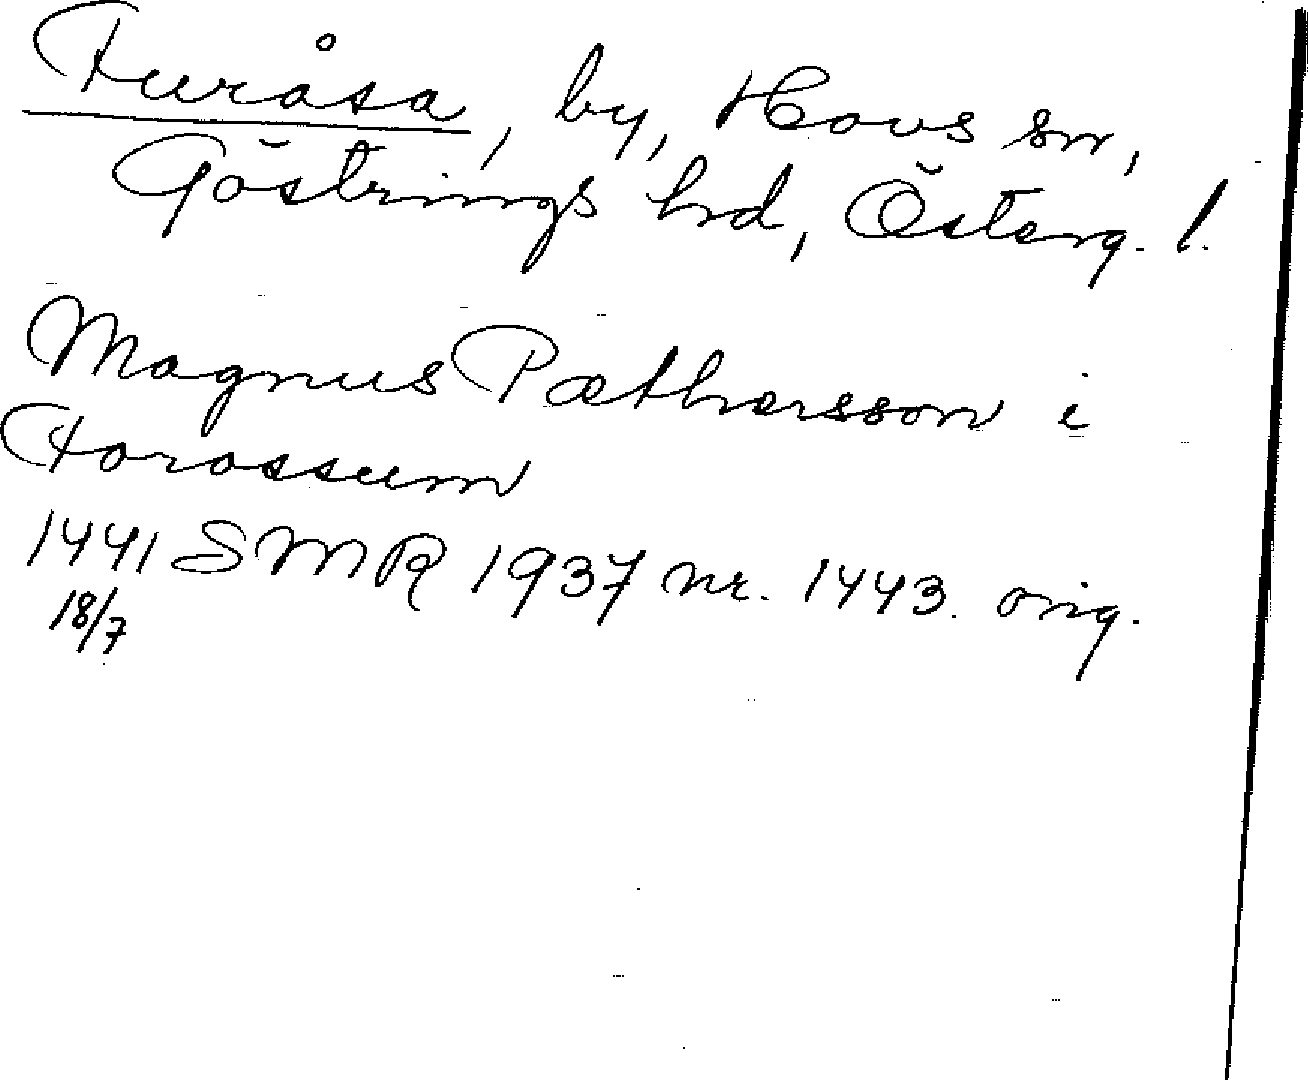 Furåsa, by, Hovs sn,
Göstrings hrd, Österg. l.
Magnus Pæthersson i
Forassum
1441 SMR 1937 nr. 1443. orig.
18/7